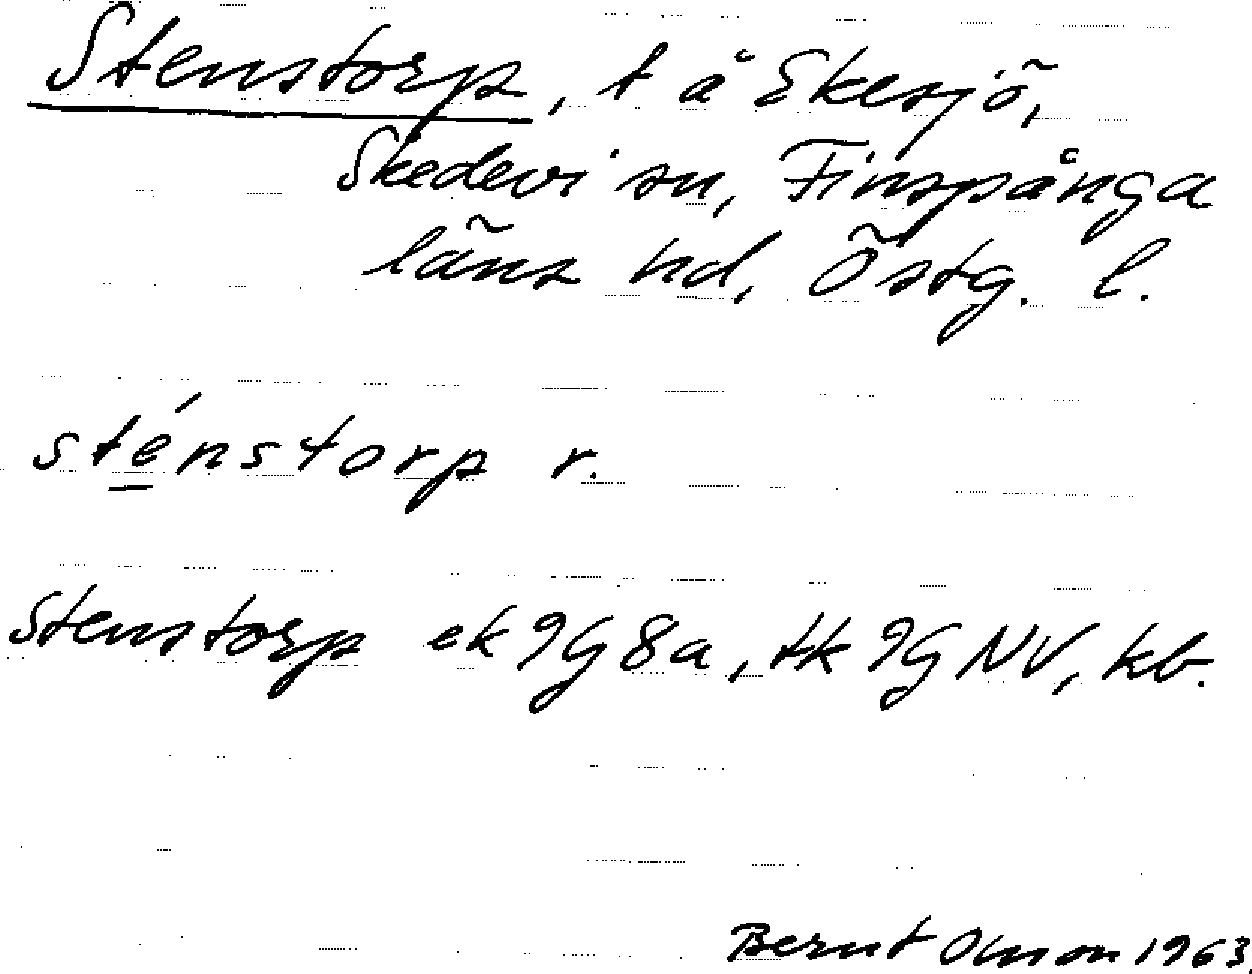 Stenstorp, t å Ekesjö,
Skedevi sn, Finspånga
läns hd, Östg. l.
sténstorp r.
Stenstorp ek 9G8a, tk 9GNV, kb.
Bernt Olsson 1963.